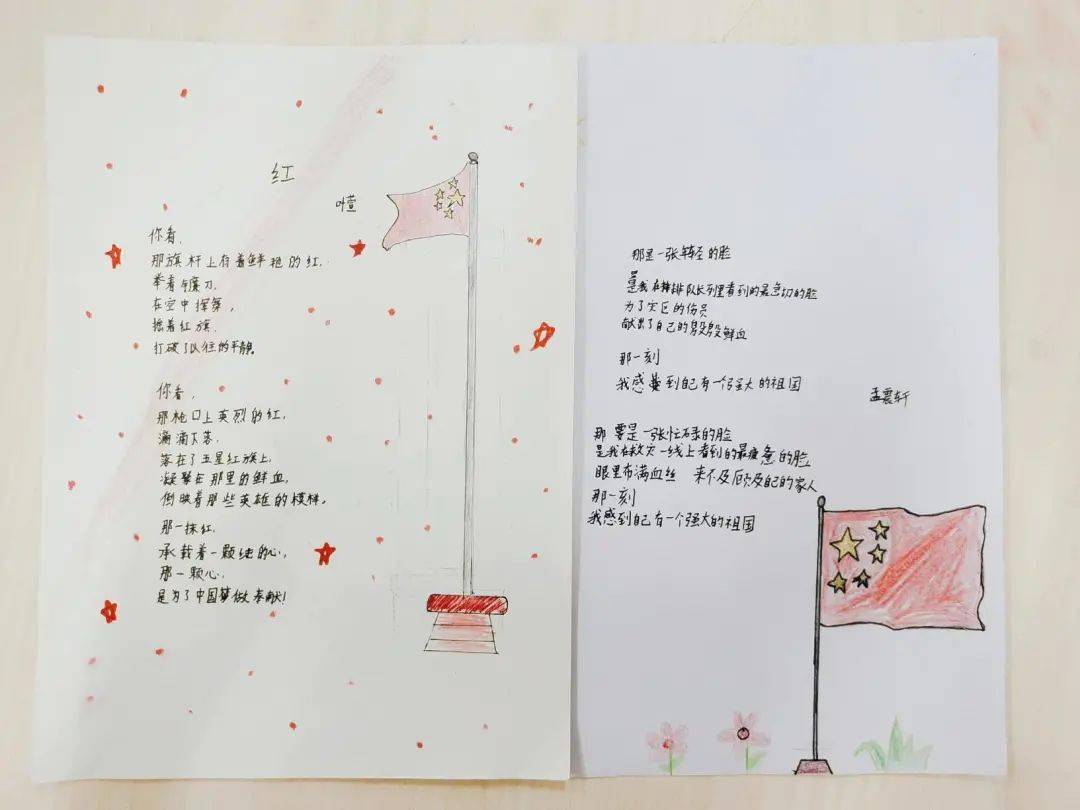 红
叶萱
你看，
那旗杆上有着鲜艳的红，
举着与镰刀，
在空中挥舞，
摇着红旗，
打破了以往的平静。
你看，
那枪口上英烈的红，
滴滴下落，
落在了五星红旗上，
凝聚在那里的鲜血，
倒映着那些英雄的模样。
那一抹红，
承载着一颗纯的心，
那一颗心，
是为了中国梦做奉献！
那是一张年轻的脸
是我在排队长列里看到的最急切的脸
为了灾区的伤员
献出了自己的殷殷鲜血
那一刻
我感到自己有一个强大的祖国
孟震轩
那是一张忙碌的脸
是我在救灾一线上看到的最疲惫的脸
眼里布满血丝 来不及顾及自己的家人
那一刻
我感到自己有一个强大的祖国